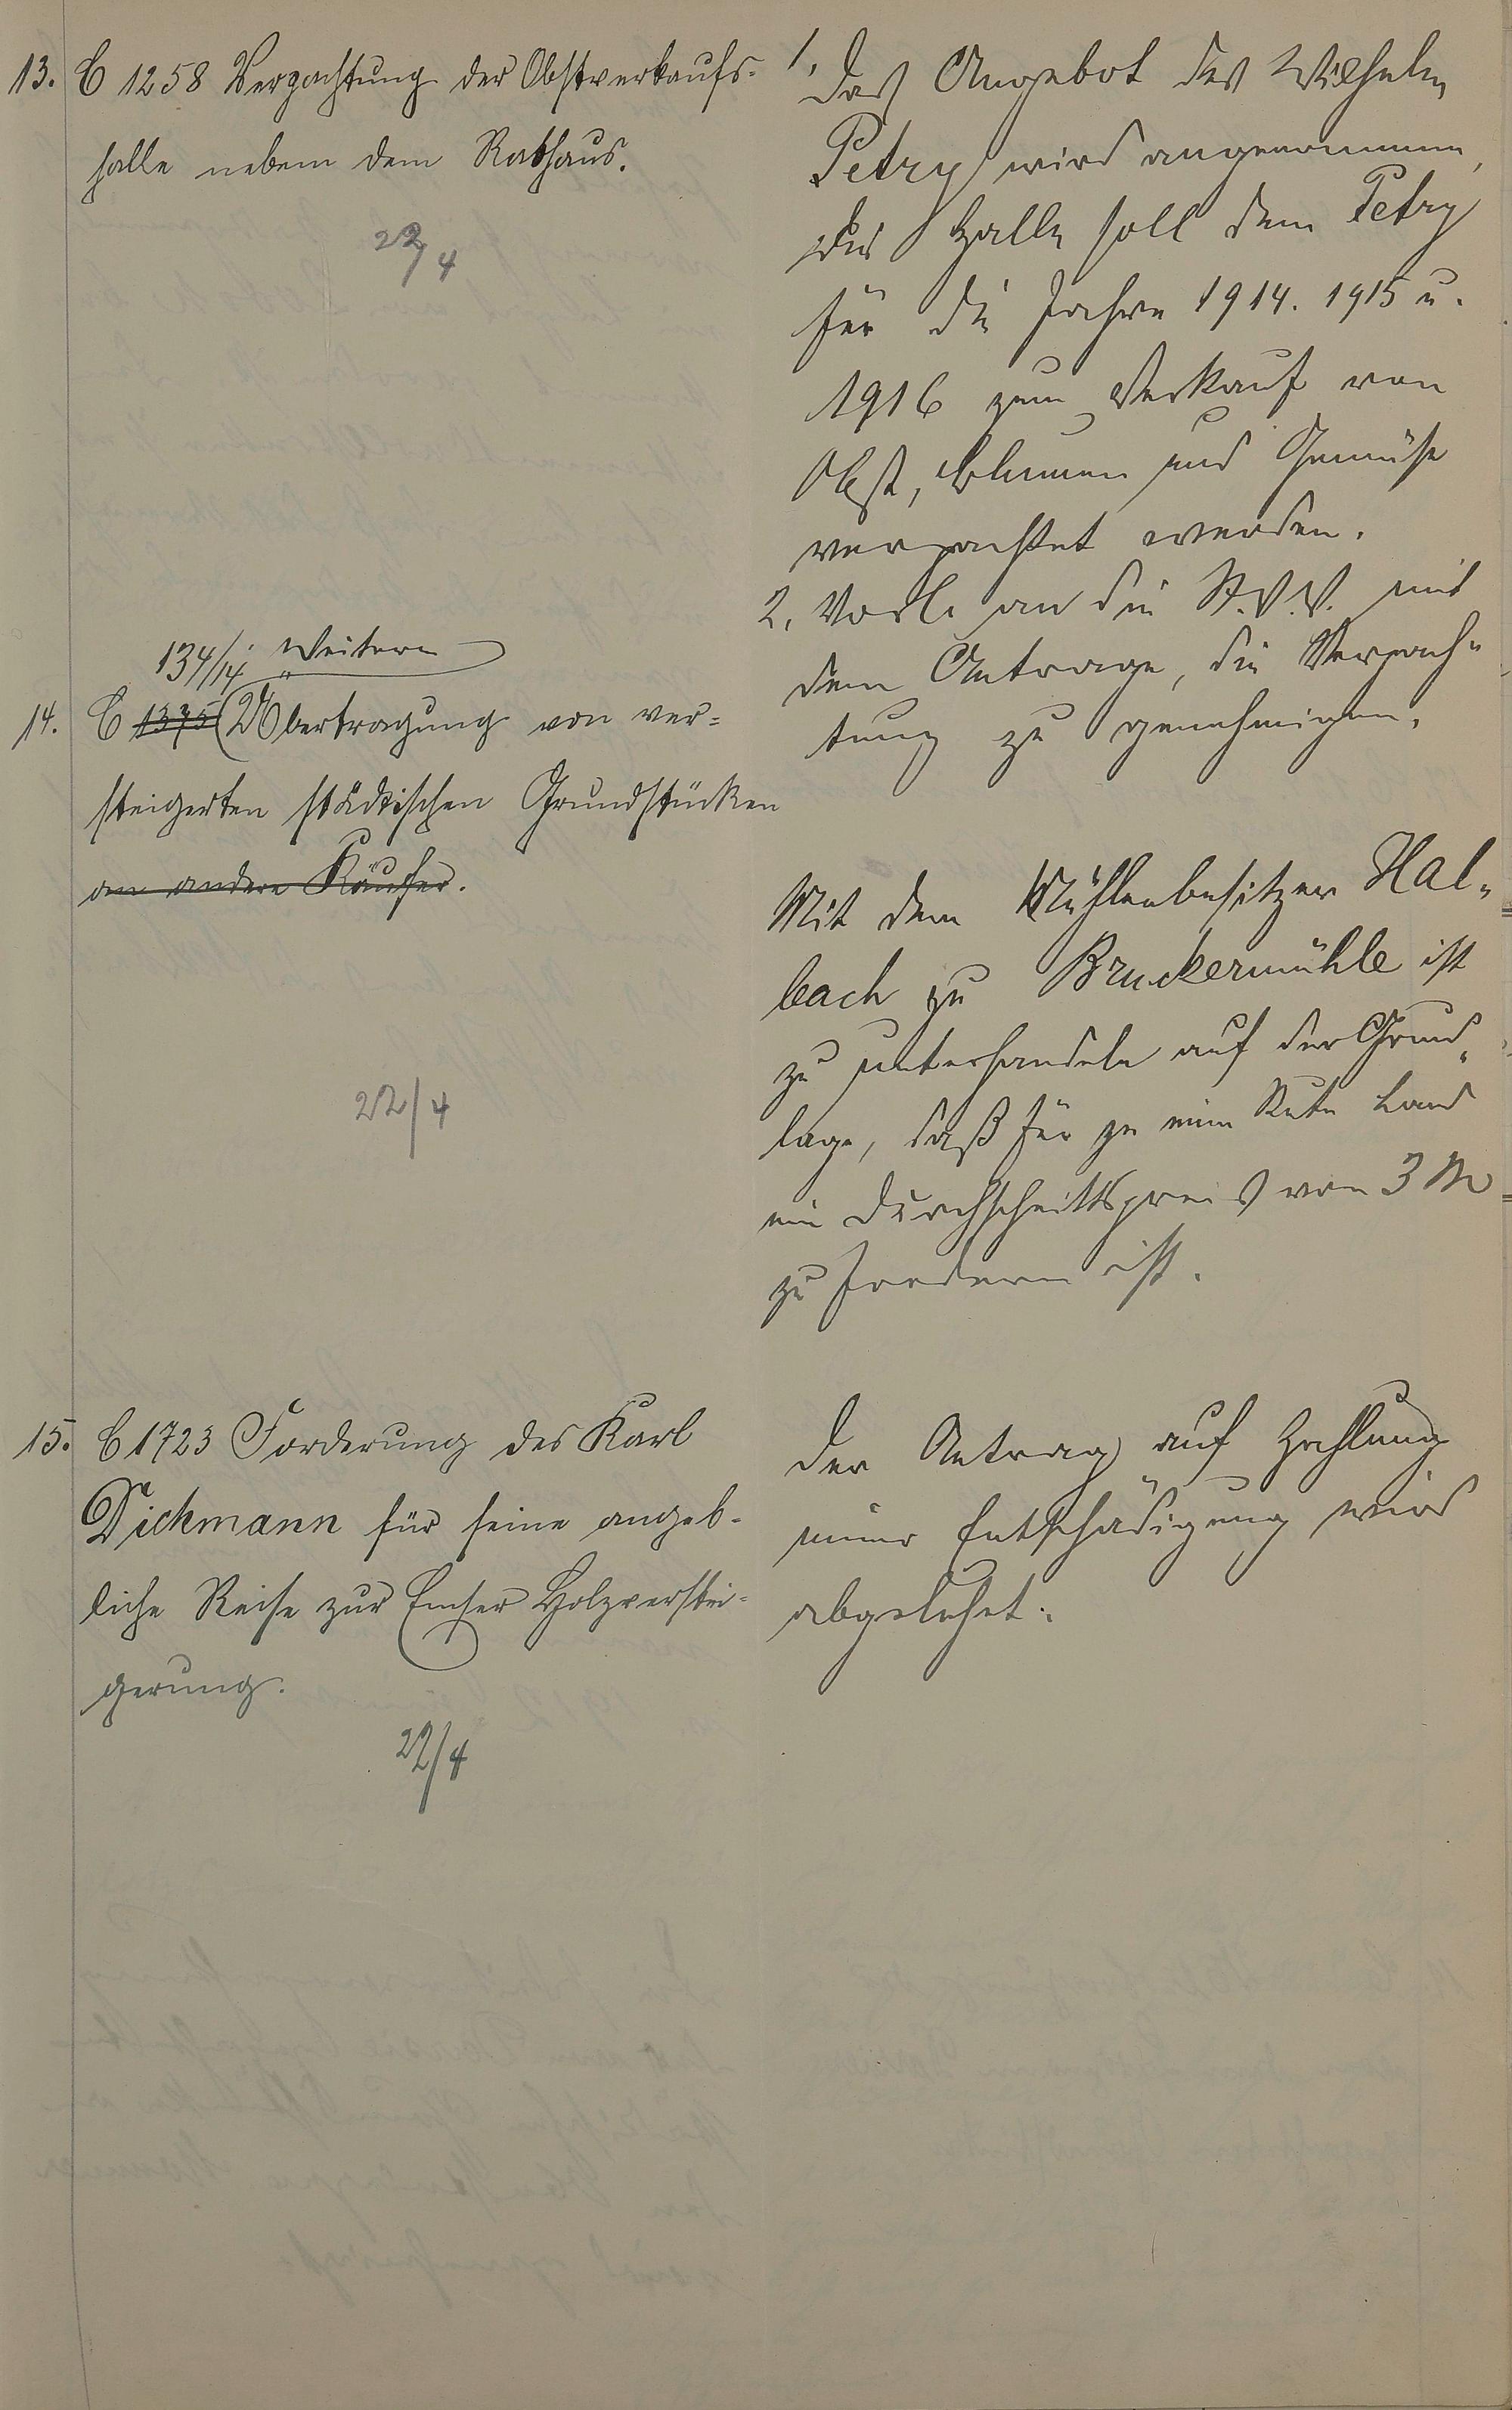 13. C 1258 Verpachtung der Obstverkaufs-
halle neben dem Rathaus.
22/4
1. Das Angebot des Wilhelm
Petry wird angenommen,
die Halle soll dem Petry
für die Jahre 1914. 1915 u.
1916 zum Verkauf von
Obst, Blumen und Gemüse
verpachtet werden.
2. Vorl. an die St.V.V. mit
dem Antrage, die Verpach-
tung zu genehmigen.
134/14 Weitere
14. C 1375 Übertragung von ver=
steigerten städtischen Grundstücken
an andere Käufer.
22/4
Mit dem Mühlenbesitzer Hal-
bach zu Bruckermühle ist
zu unterhandeln auf der Grund-
lage, daß für je eine Rute Land
ein Durchschnittspreis von 3 M
zu fordern ist.
15. C 1723 Forderung des Karl
Dickmann für seine angeb-
liche Reise zur Emser Holzverstei-
gerung.
22/4
Der Antrag auf Zahlung
einer Entschädigung wird
abgelehnt.